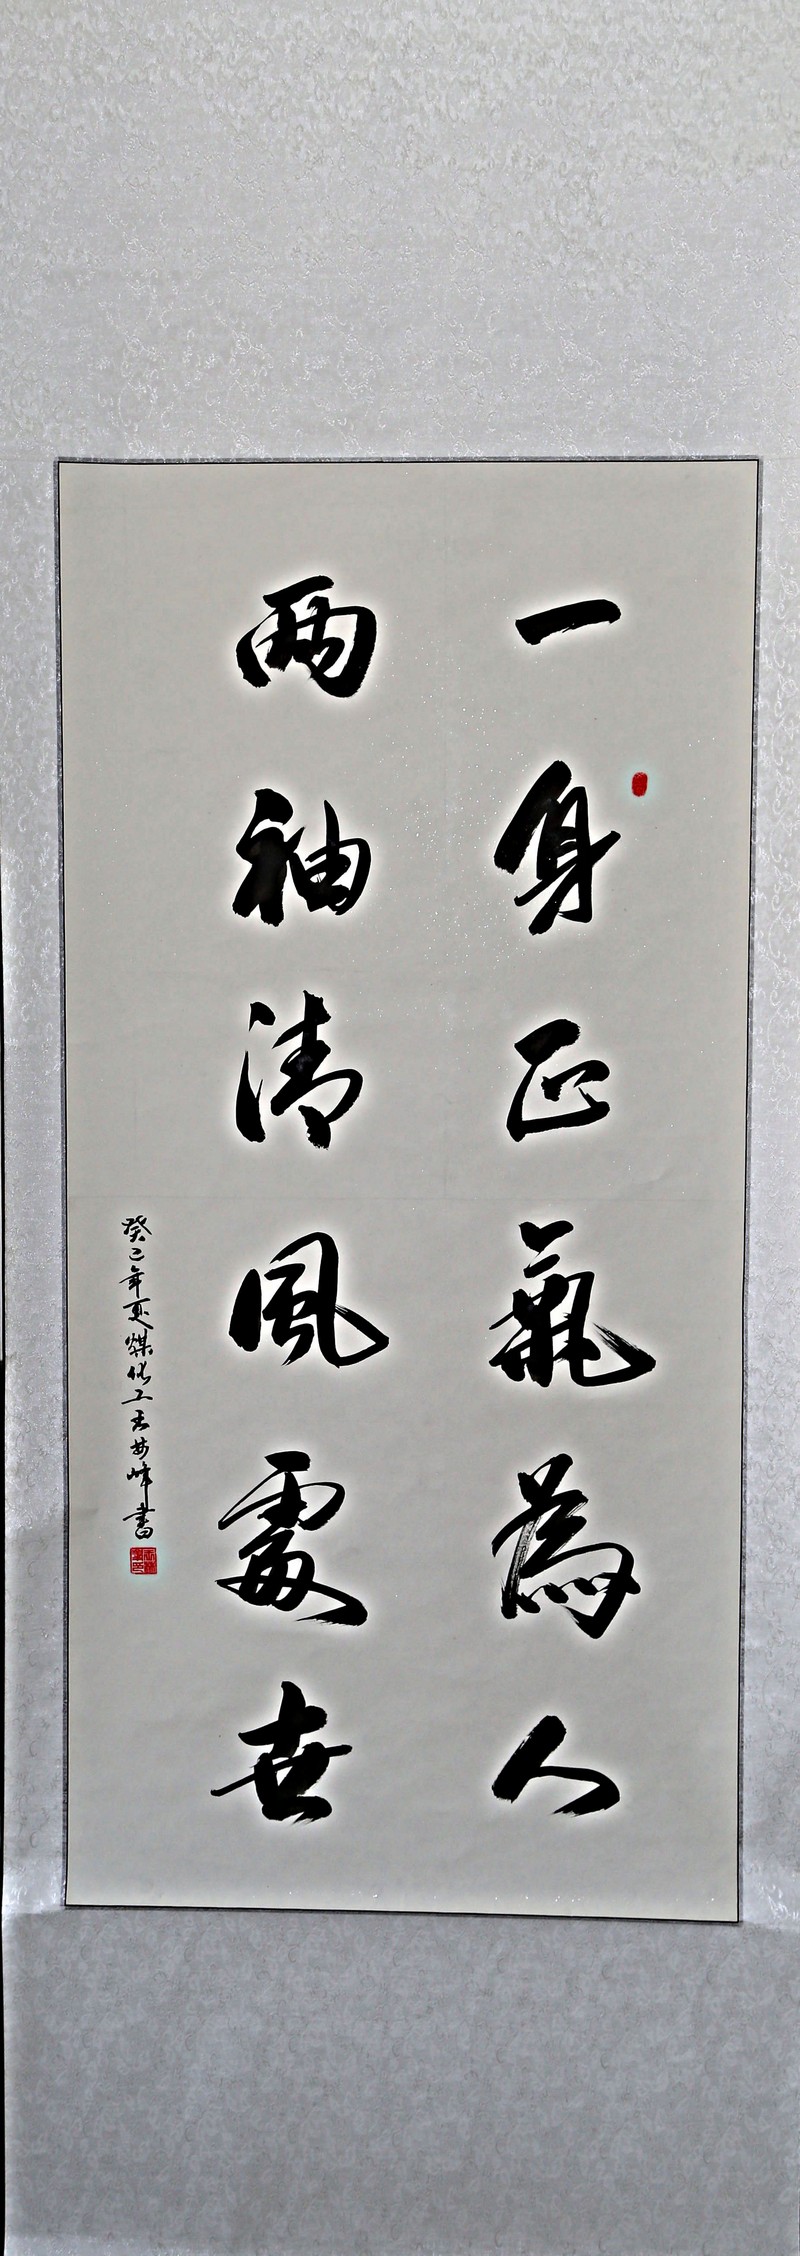 一身正氣為人
两袖清風處世
癸巳年夏煤化工王世峰書